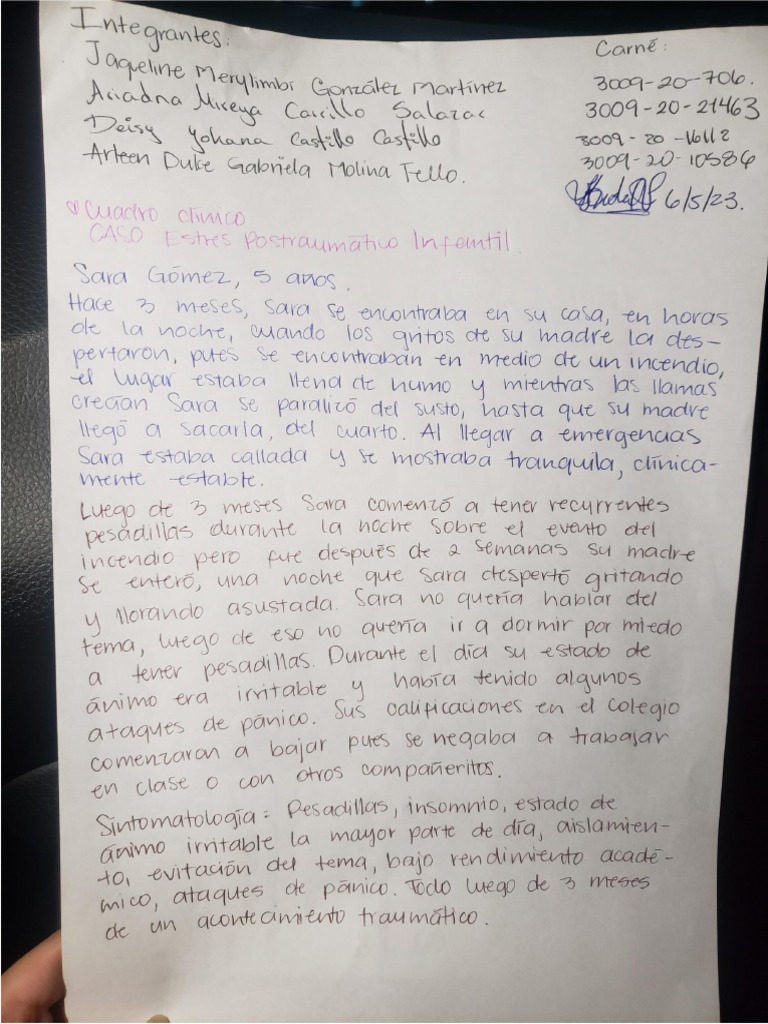 Integrantes:
Carné:
Jaqueline Merylimbi González Martínez
3009-20-706.
Ariadna Mireya Carrillo Salazar
3009-20-21463
Deisy Yohana Castillo Castillo
3009-20-16112
Arleen Dulce Gabriela Molina Tello.
3009-20-10586
6/5/23.
Cuadro clínico
CASO Estrés Postraumático Infantil.
Sara Gómez, 5 años.
Hace 3 meses, Sara se encontraba en su casa, en horas
de la noche, cuando los gritos de su madre la des-
pertaron, pues se encontraban en medio de un incendio,
el lugar estaba llena de humo y mientras las llamas
crecían Sara se paralizó del susto, hasta que su madre
llegó a sacarla, del cuarto. Al llegar a emergencias
Sara estaba callada y se mostraba tranquila, clínica-
mente estable.
Luego de 3 meses Sara comenzó a tener recurrentes
pesadillas durante la noche sobre el evento del
incendio pero fue después de 2 semanas su madre
se enteró, una noche que Sara despertó gritando
y llorando asustada. Sara no quería hablar del
tema, luego de eso no quería ir a dormir por miedo
a tener pesadillas. Durante el día su estado de
ánimo era irritable y había tenido algunos
ataques de pánico. Sus calificaciones en el colegio
comenzaron a bajar pues se negaba a trabajar
en clase o con otros compañeritos.
Sintomatología: Pesadillas, insomnio, estado de
ánimo irritable la mayor parte de día, aislamien-
to, evitación del tema, bajo rendimiento acadé-
mico, ataques de pánico. Todo luego de 3 meses
de un acontecimiento traumático.